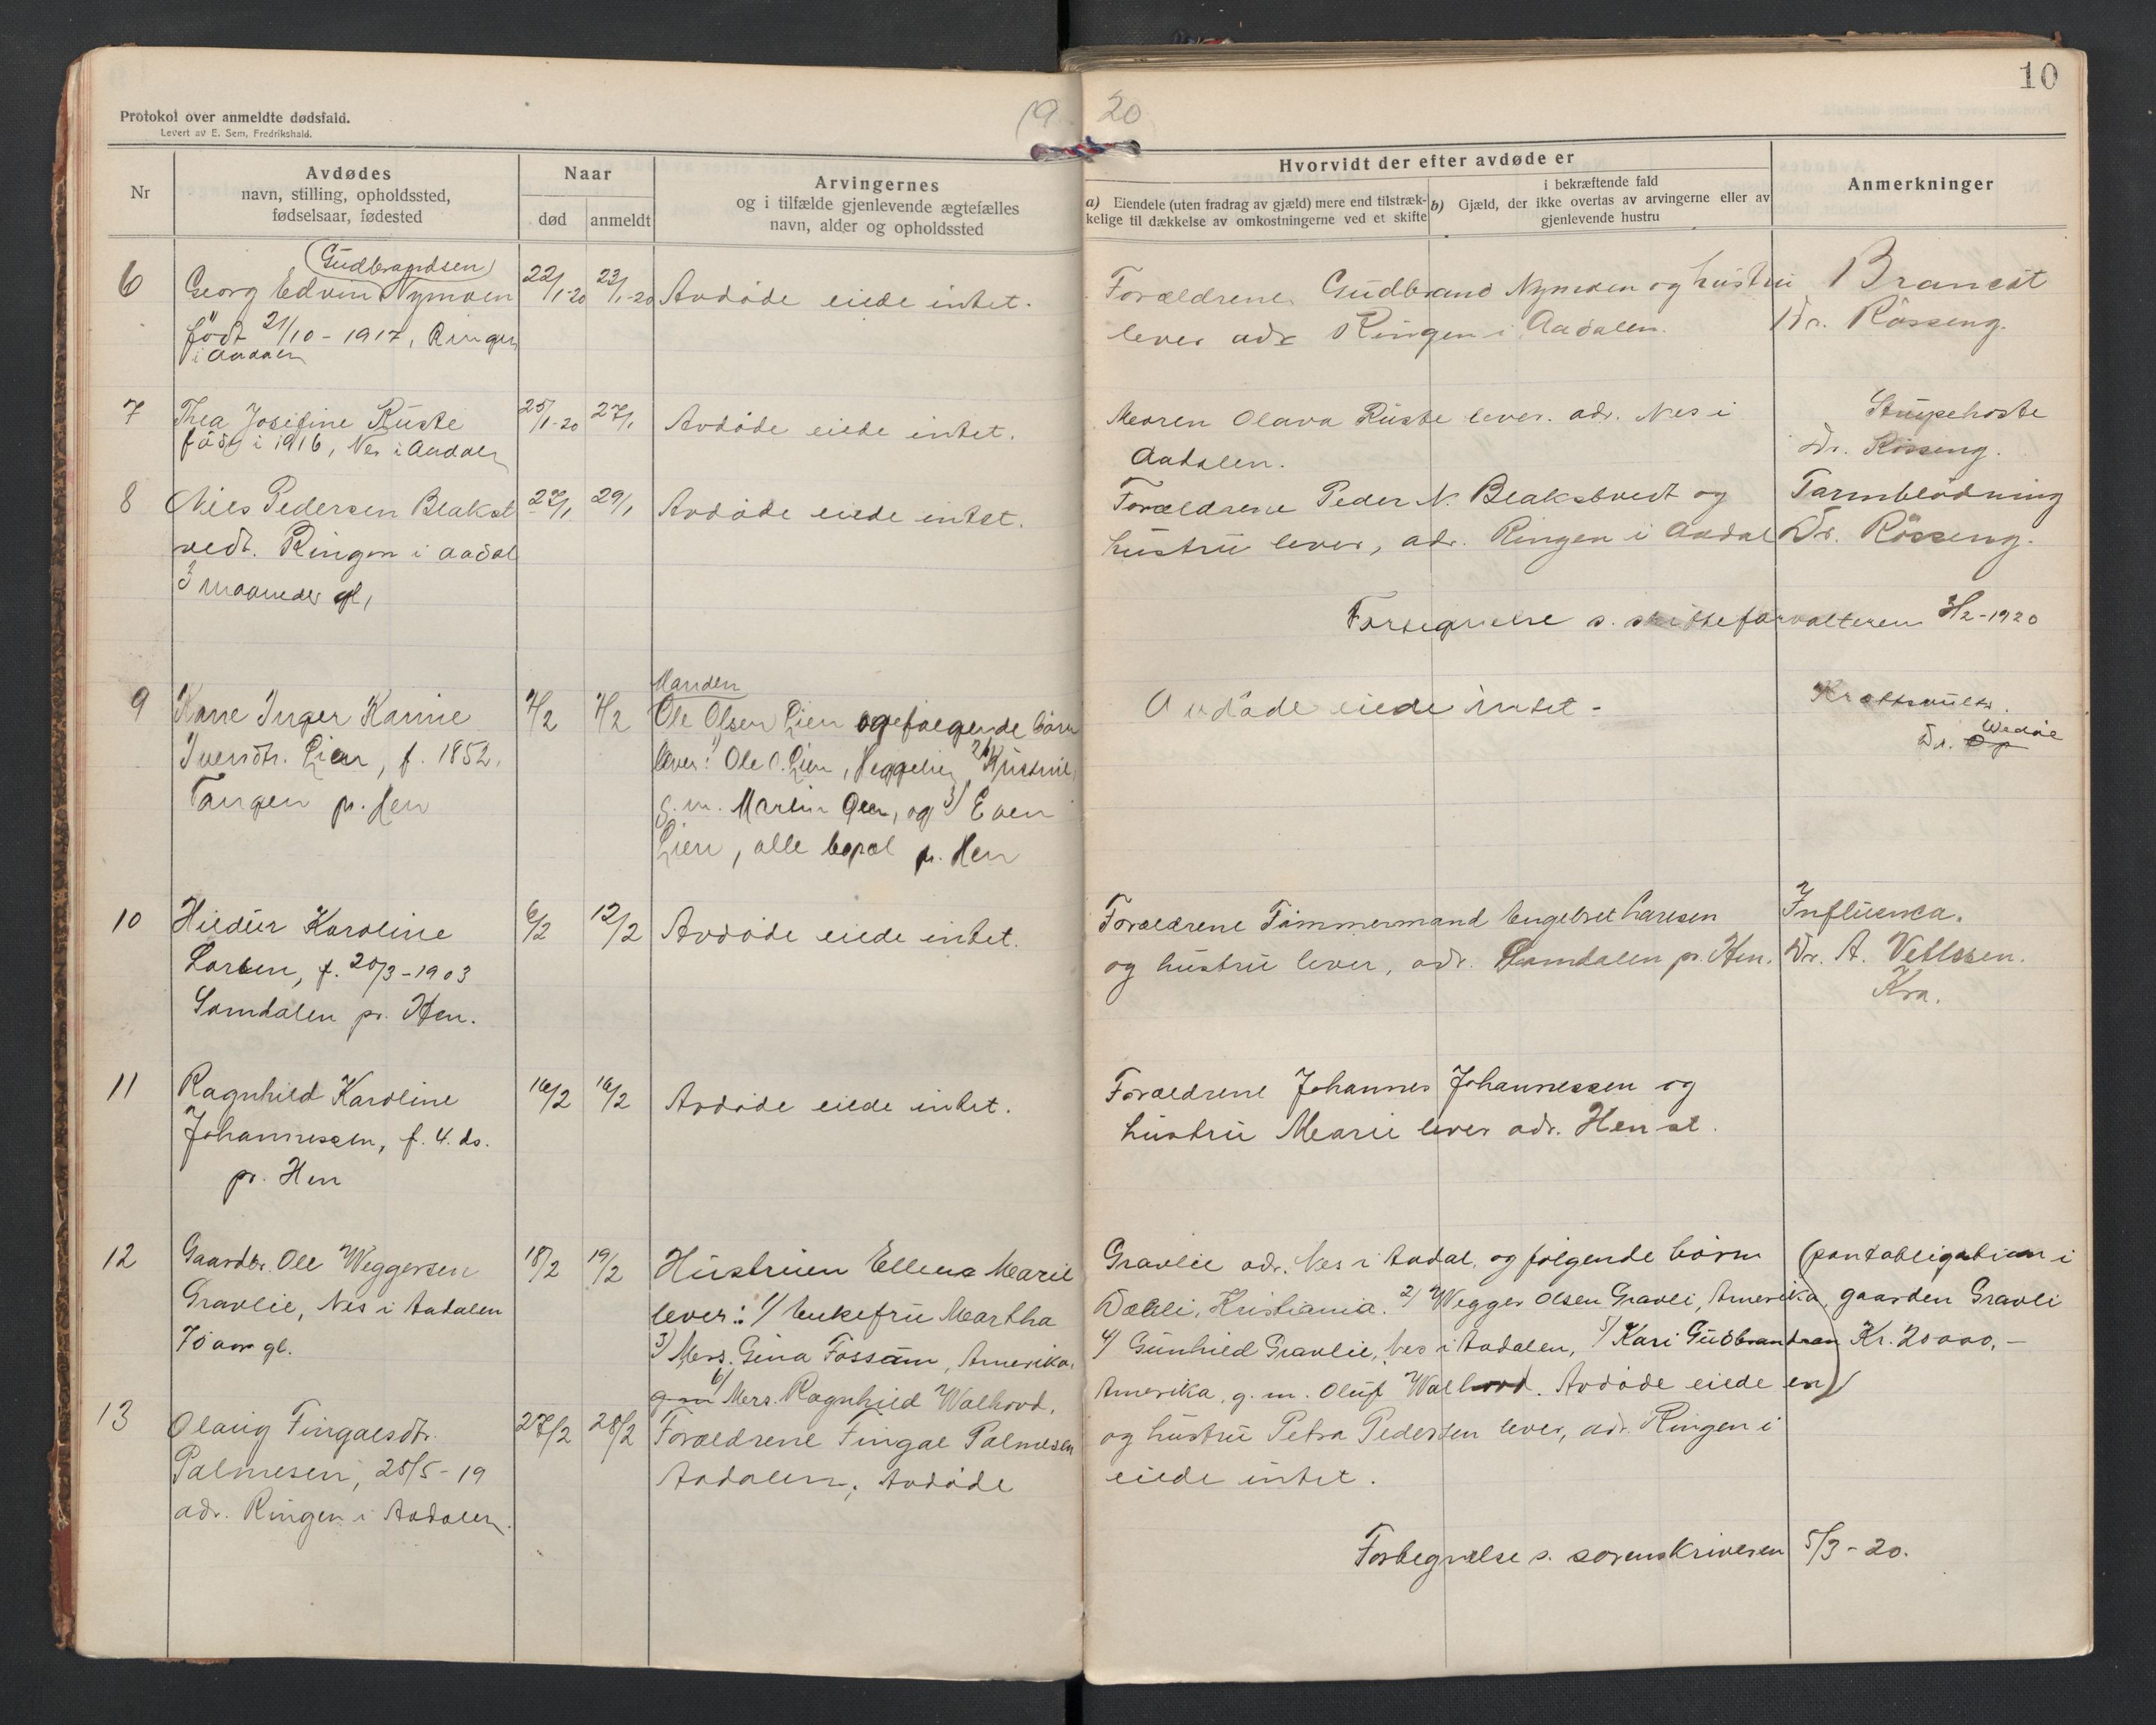 10
Protokol over anmeldte dødsfald.
Levert av E. Sem, Fredrikshald.
19 20
Nr
Avdødes
navn, stilling, opholdssted,
fødselsaar, fødested
Naar
død
anmeldt
Arvingernes
og i tilfælde gjenlevende ægtefælles
navn, alder og opholdssted
Hvorvidt der efter avdøde er
a) Eiendele (uten fradrag av gjæld) mere end tilstræk-
kelige til dækkelse av omkostningerne ved et skifte
i bekræftende fald
b) Gjæld, der ikke overtas av arvingerne eller av
gjenlevende hustru
Anmerkninger
6
Gudbrandsen
Georg Edvin Nymoen
født 21/10 - 1917, Ringen
i Aadalen
22/1-20
23/1-20
Avdøde eiede intet.
Forældrene Gudbrand Nymoen og hustru
lever adr Ringen i Aadalen.
Brancat
Dr. Røsseng.
7
Thea Josefine Ruste
født i 1916, Nes i Aadalen
25/1-20
27/1
Avdøde eiede intet.
Moren Olava Ruste lever. adr. Nes i
Aadalen.
Strupehoste
Dr. Røsseng.
8
Niels Pedersen Blakst
vedt. Ringen i Aadal
3 maaneder gl,
29/1
Avdøde eiede intet.
Forældrene Peder N. Blakstvedt og
hustru lever, adr. Ringen i Aadal
Tarmblødning
Dr. Røsseng.
Fortegnelse s. skifteforvalteren 3/2-1920
9
Kone Inger Karine
Iversdtr. Lien, f. 1852.
Tangen pr. Hen
4/2
4/2
Manden
Ole Olsen Lien og følgende børn
lever: 1) Ole O. Lien, Heggelien, 2)
g. m. Martin Oen, og 3) Even
Lien, alle bopæl pr. Hen
Avdøde eiede intet -
Kræftsvulst.
Dr. Wedøe
10
Hildur Karoline
Larsen, f. 20/3-1903
Samdalen pr. Hen.
6/2
12/2
Avdøde eiede intet.
Forældrene Tømmermand Engebret Larsen
og hustru lever, adr. Samdalen pr. Hen.
Influenca.
Dr. A. Vetlesen.
Kra.
11
Ragnhild Karoline
Johannessen, f. 4. ds.
pr. Hen
16/2
16/2
Avdøde eiede intet.
Forældrene Johannes Johannessen og
hustru Marie lever adr. Hen st.
12
Gaardbr. Ole Weggersen
Gravlie, Nes i Aadalen
75 aar gl.
18/2
19/2
Hustruen Ellen Marie
Gravlie adr. Nes i Aadal, og følgende børn
(pantobligation i
lever: 1/ Enkefru Martha
Dæhli, Kristiania. 2/ Wegger Olsen Gravli, Amerika,
gaarden Gravli
3) Mrs. Gina Fossum, Amerika.
4/ Gunhild Gravlie, Nes i Aadalen, 5/ Kari Gudbrandsen
Kr. 20000.-
6/ Mrs. Ragnhild Walhovd,
Amerika, g. m. Oluf Walhovd. Avdøde eiede en)
13
Olaug Fingalsdtr.
Palmesen, 25/5-19
adr. Ringen i Aadalen.
27/2
28/2
Forældrene Fingal Palmesen
og hustru Petra Pedersen lever, adr. Ringen i
Aadalen. Avdøde
eiede intet.
Fortegnelse s. sorenskriveren 5/3-20.